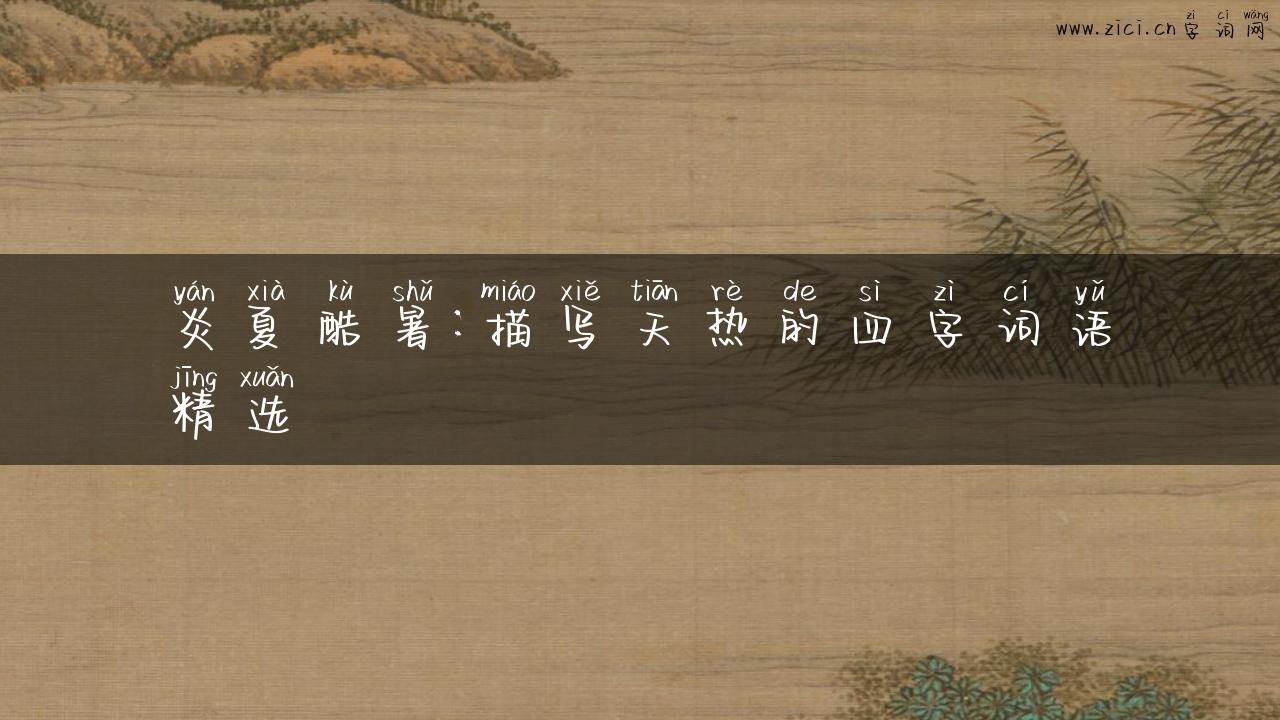 zì cí wǎng
www.zici.cn 字词网
yán xià kù shǔ miáo xiě tiān rè de sì zì cí yǔ
炎夏酷暑:描写天热的四字词语
jīng xuǎn
精选